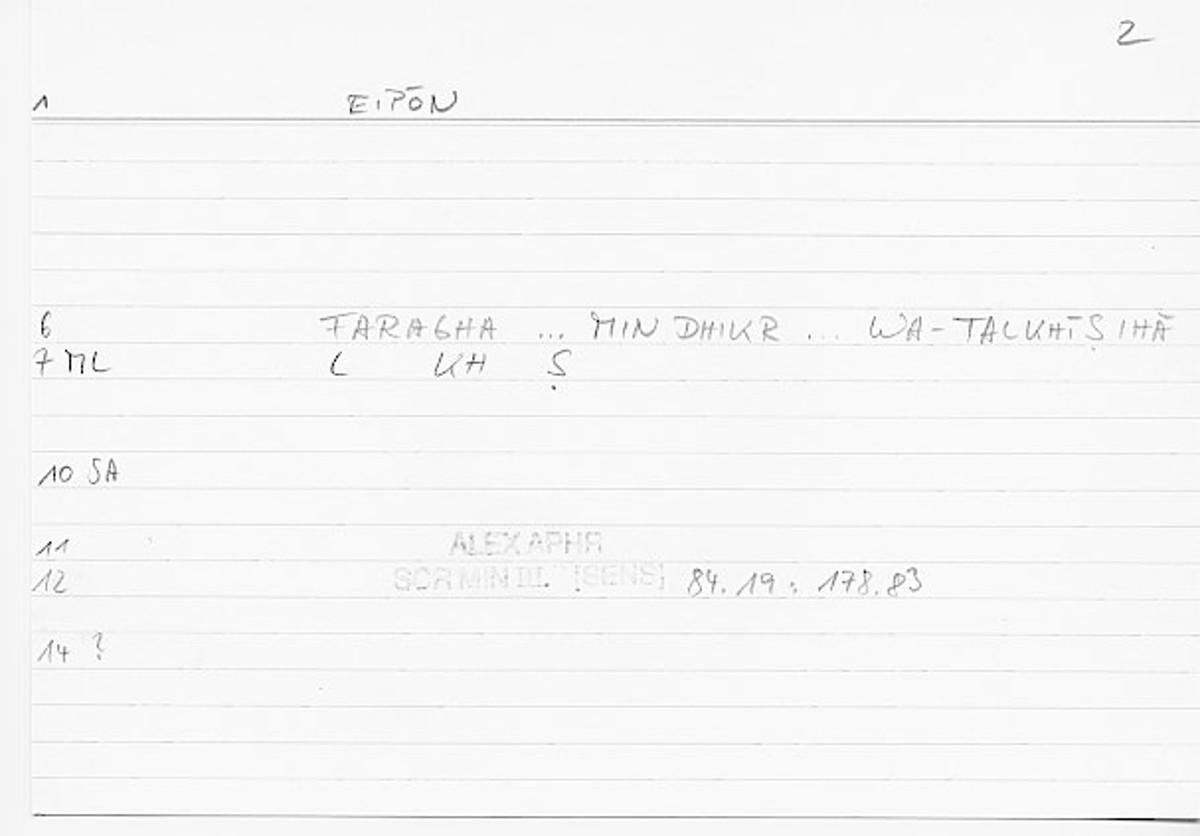 2
1 EIPŌN
6 FARAGHA ... MIN DHIKR ... WA-TALKHĪṢIHĀ
7 ML L KH Ṣ
10 SA
11 ALEX APHR
12 SCR MIN III. [SENS] 84.19 : 178.83
14 ?